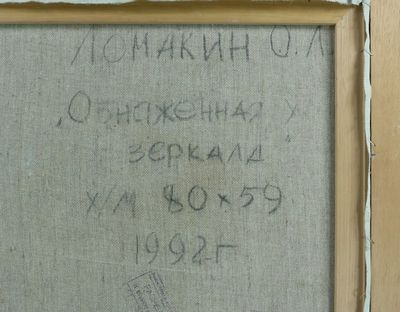 ЛОМАКИН О.Л.
„Обнаженная у
зеркала"
х/м 80×59
1992г